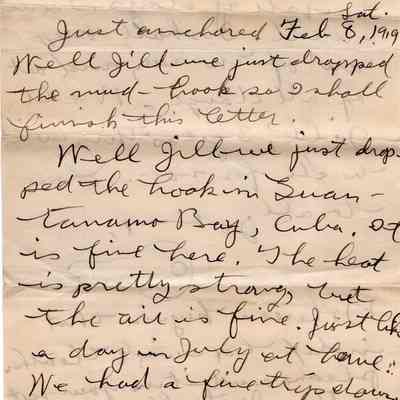 Sat.
Just anchored Feb 8, 1919
Well Jill - we just dropped
the mud-hook so I shall
finish this letter.
Well Jill - we just drop-
ped the hook in Guan-
tanamo Bay, Cuba. It
is fine here. The heat
is pretty strong, but
the air is fine. Just like
a day in July at home.
We had a fine trip down,